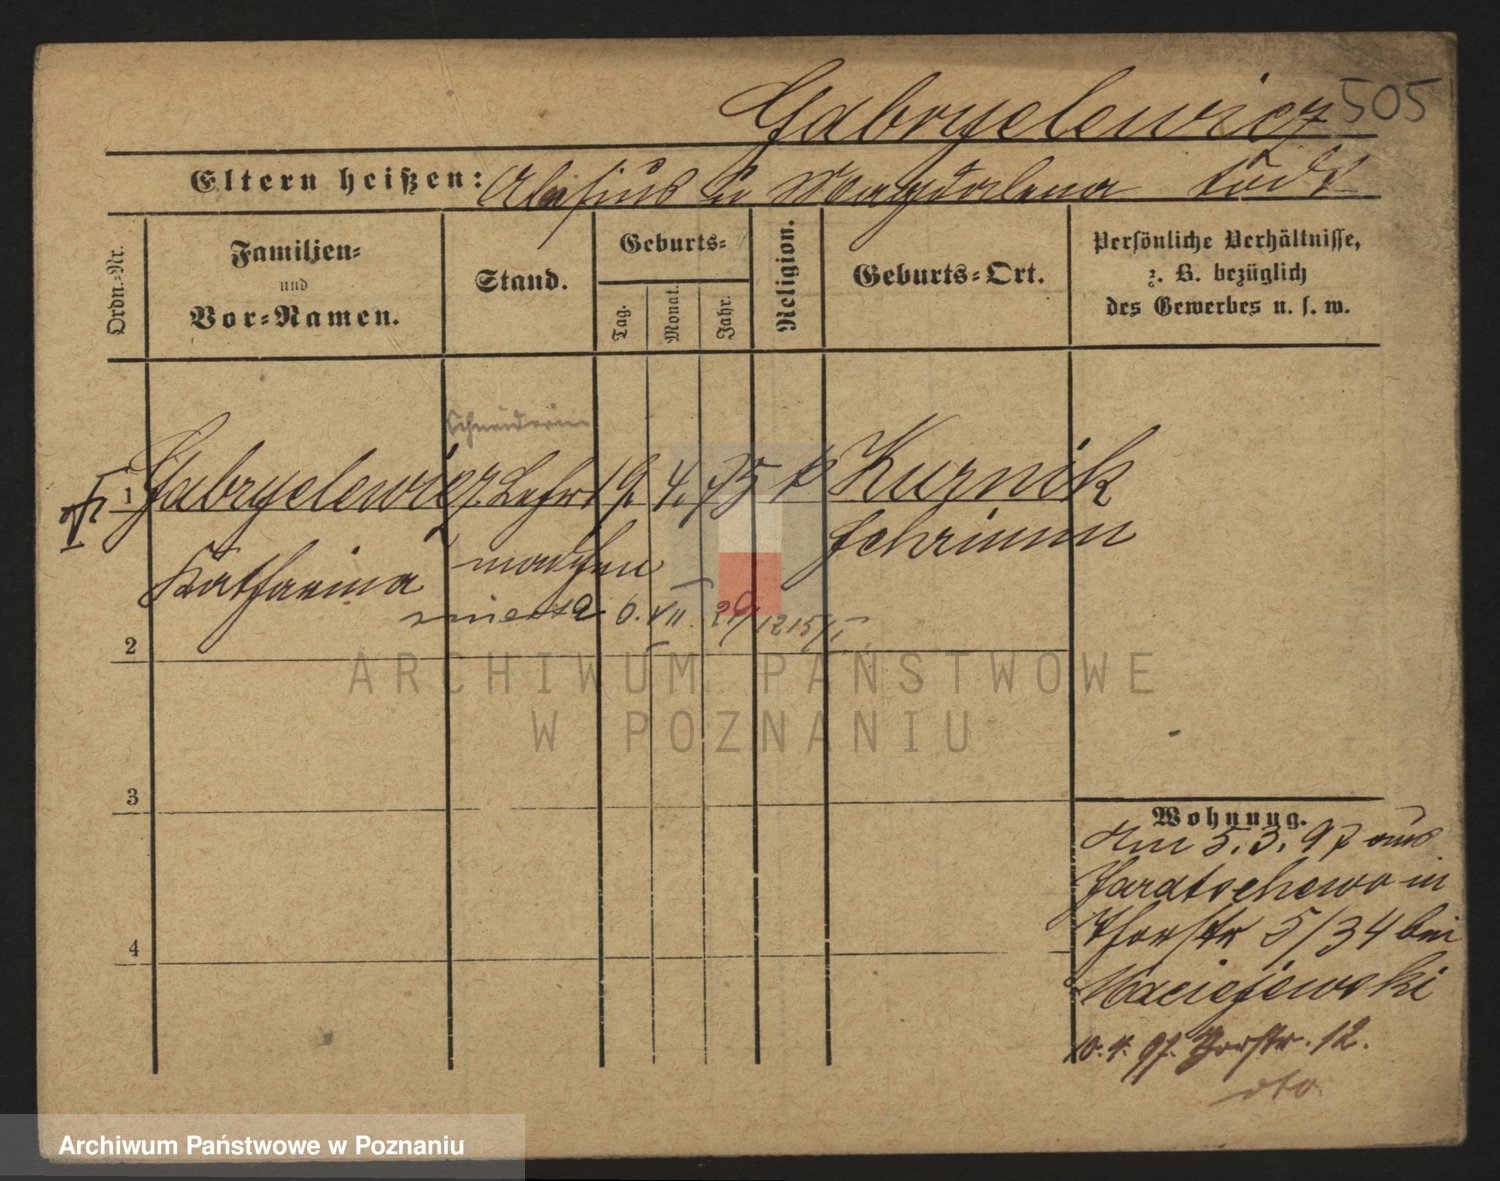 Gabryelewicz 505
Eltern heißen: Magdalena todt
Ordn.-Nr.
Familien- und Vor-Namen.
Stand.
Geburts-
Tag. Monat. Jahr.
Religion.
Geburts-Ort.
Persönliche Verhältnisse,
z. B. bezüglich
des Gewerbes u. s. w.
Schneiderin
1 Gabryelewicz Lehr 19. 4. 75 k Kurnik
Katharina mädchen Schrimm
6. VII.
2
ARCHIWUM PAŃSTWOWE
W POZNANIU
3
Wohnung.
Am 5.3.97 aus
in
Thorstr 5/34 bei
Maciejewski
4
10.4.97. Thorstr. 12.
dto.
Archiwum Państwowe w Poznaniu